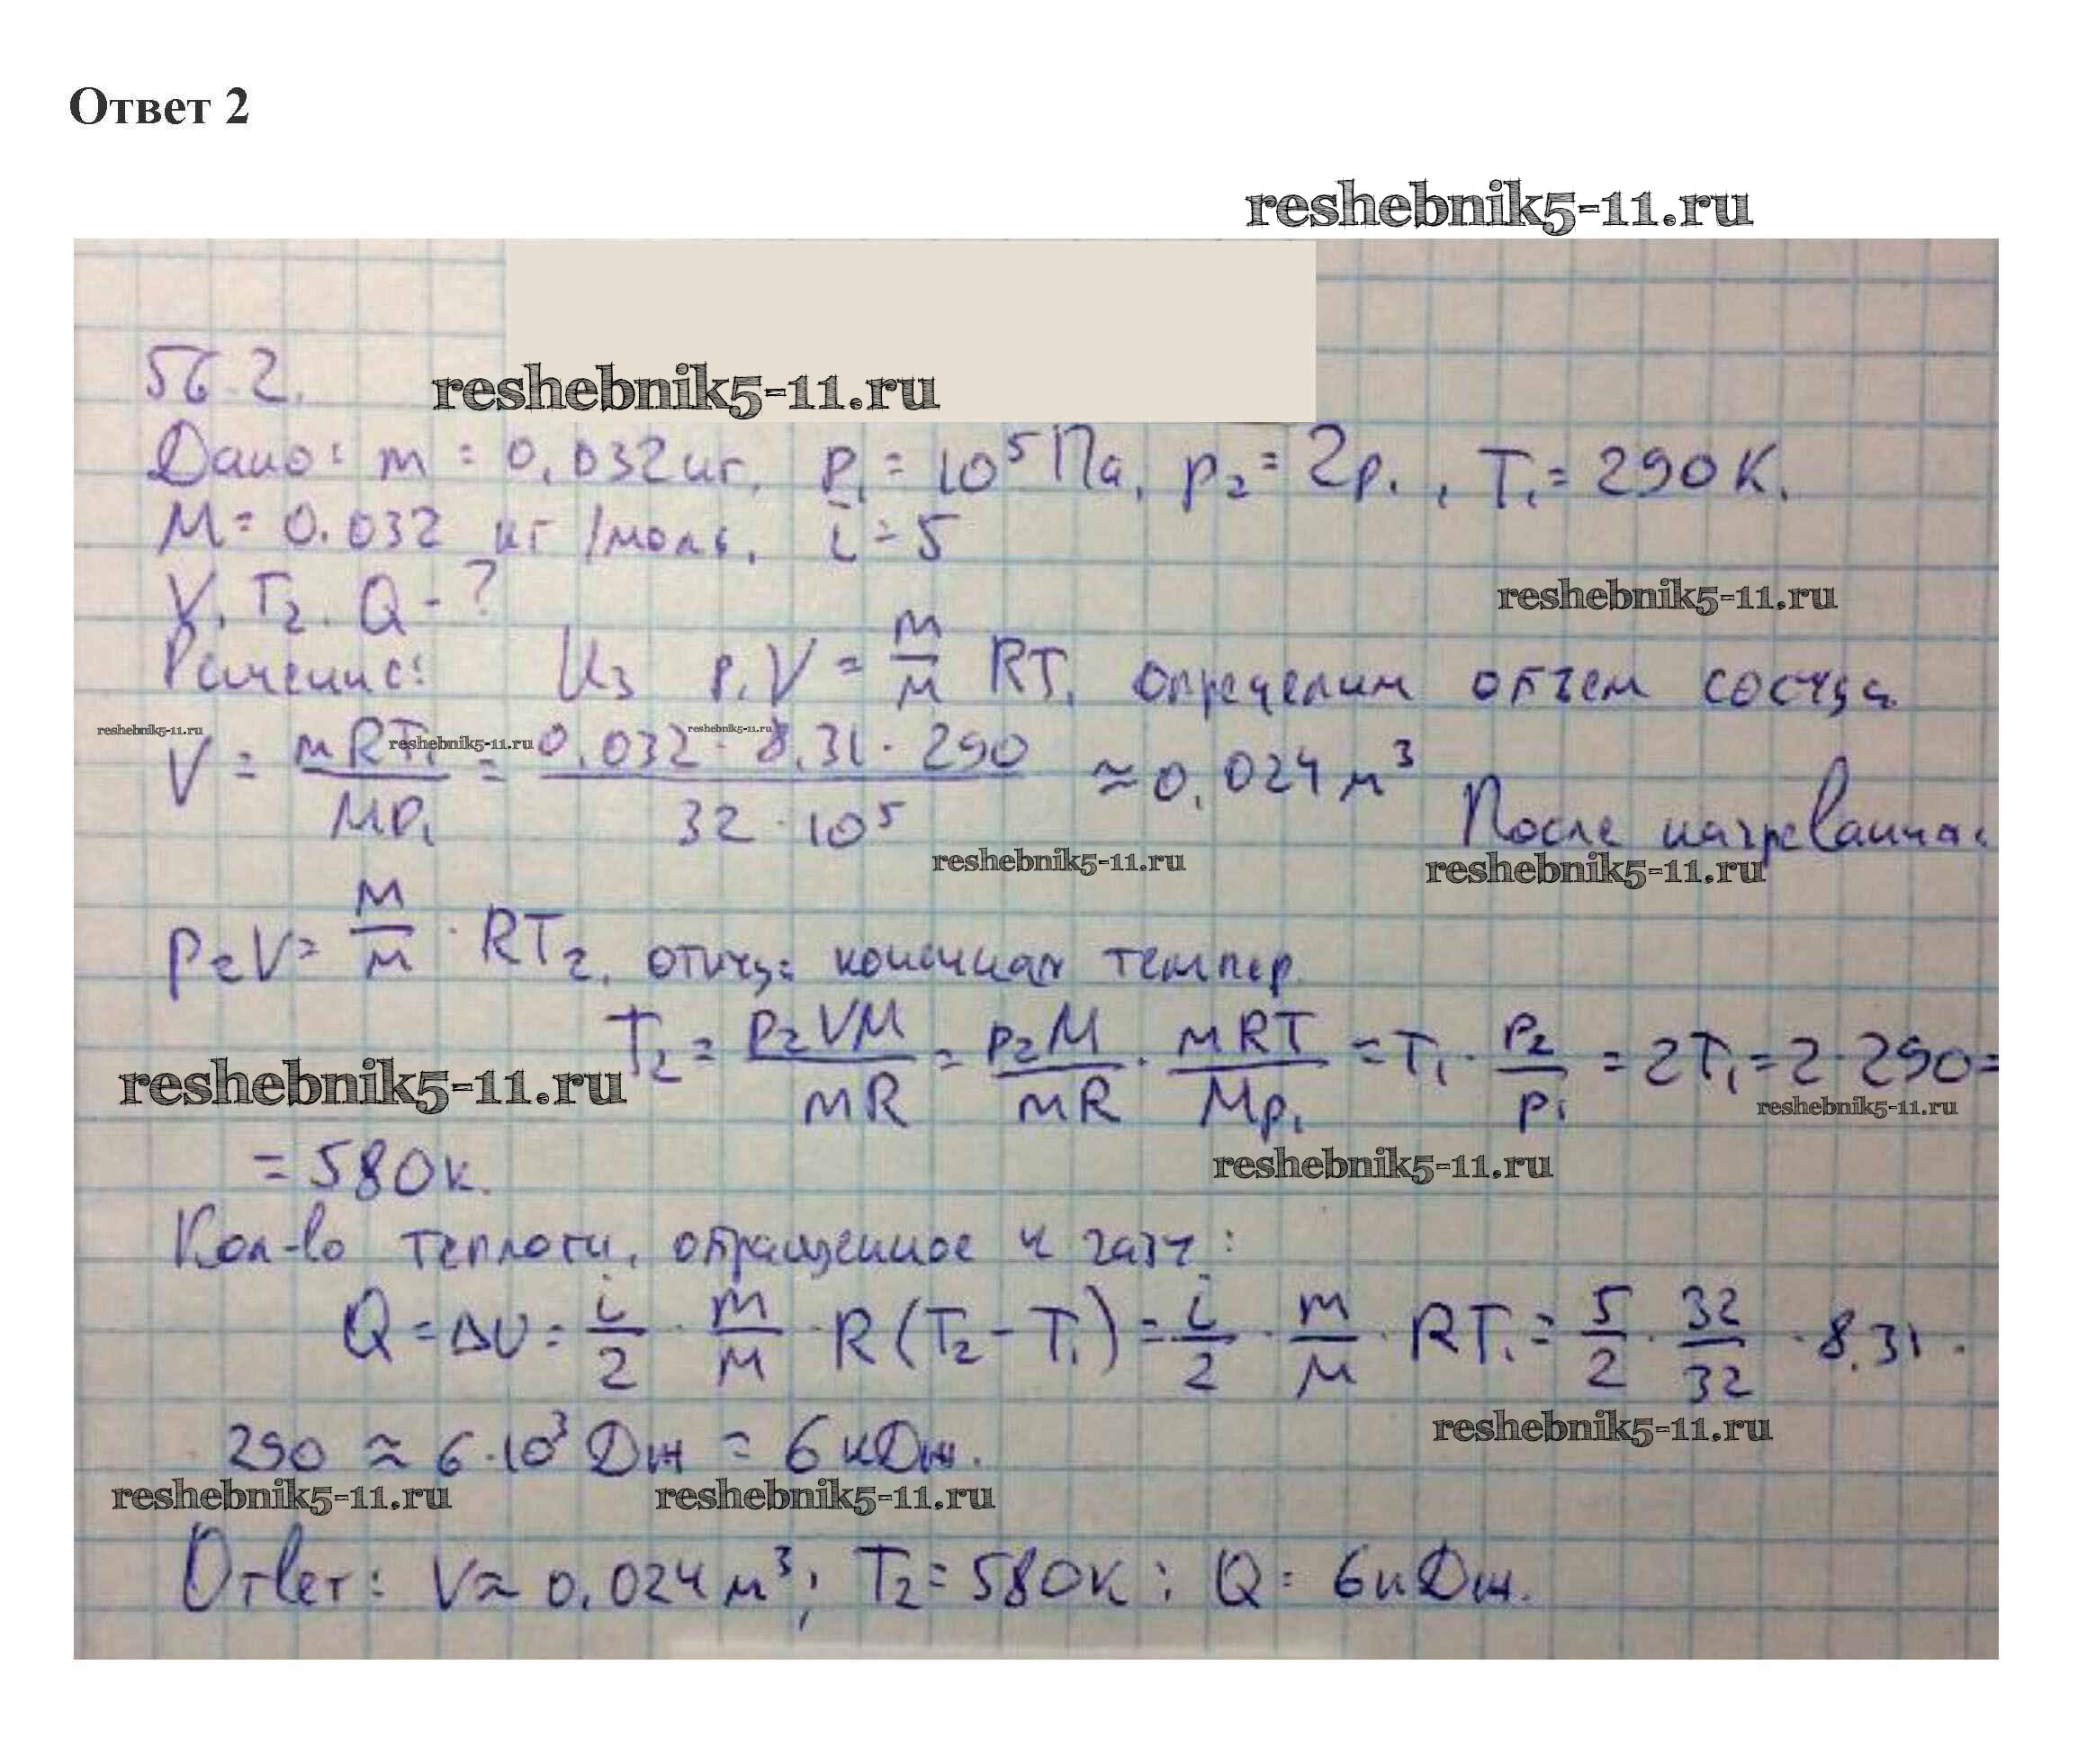 Ответ 2
reshebnik5-11.ru
56.2.
reshebnik5-11.ru
Дано: m = 0,032 кг, P₁ = 10⁵ Па, p₂ = 2p₁, T₁ = 290 К.
M = 0.032 кг/моль, i = 5
reshebnik5-11.ru
V, T₂, Q - ?
Решение: Из p₁V = m/M RT₁ определим объем сосуда
reshebnik5-11.ru reshebnik5-11.ru reshebnik5-11.ru
V = mRT₁/Mp₁ = 0,032 · 8,31 · 290/32 · 10⁵ ≈ 0,024 м³ После нагревания:
reshebnik5-11.ru reshebnik5-11.ru
P₂V = m/M · RT₂, отсюда конечная темпер.
T₂ = P₂VM/mR = p₂M/mR · mRT/Mp₁ = T₁ · P₂/P₁ = 2T₁ = 2 · 290 =
reshebnik5-11.ru reshebnik5-11.ru
= 580 К.
reshebnik5-11.ru
Кол-во теплоты, обращенное к газу:
Q = ΔU = i/2 · m/M · R(T₂ - T₁) = i/2 · m/M · RT₁ = 5/2 · 32/32 · 8,31 ·
reshebnik5-11.ru
290 ≈ 6 · 10³ Дж = 6 кДж.
reshebnik5-11.ru reshebnik5-11.ru
Ответ: V ≈ 0,024 м³; T₂ = 580 К; Q = 6 кДж.